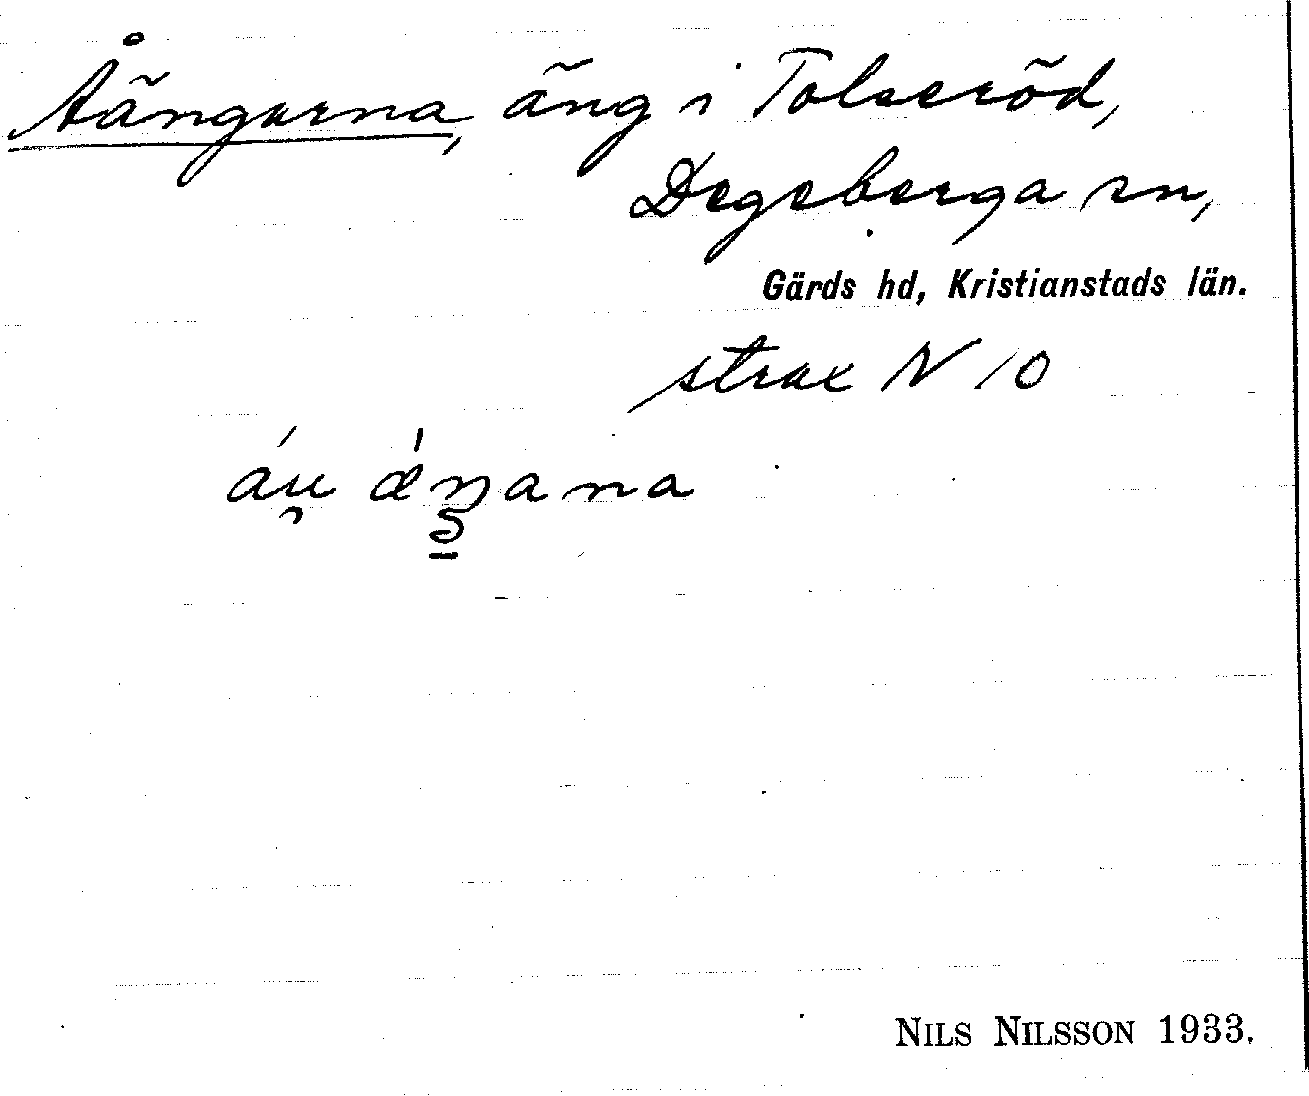 Åängarna, äng i Tolseröd,
Degeberga sn,
Gärds hd, Kristianstads län.
strax N 10
áu̯ ǽŋana
NILS NILSSON 1933.